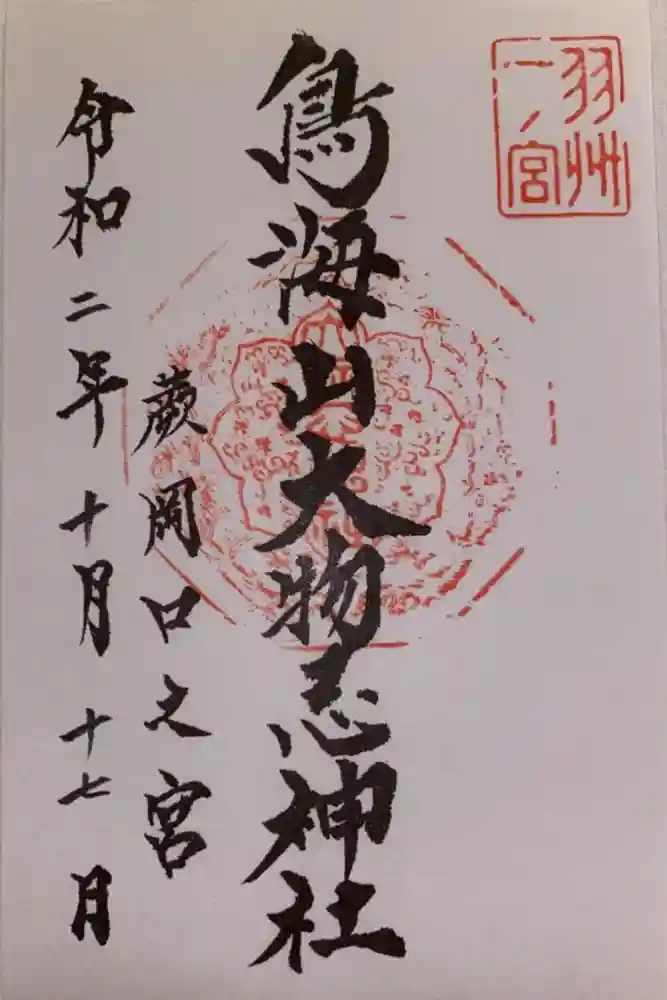 羽州
一ノ宮
鳥海山大物忌神社
蕨岡口之宮
令和二年十月十七日